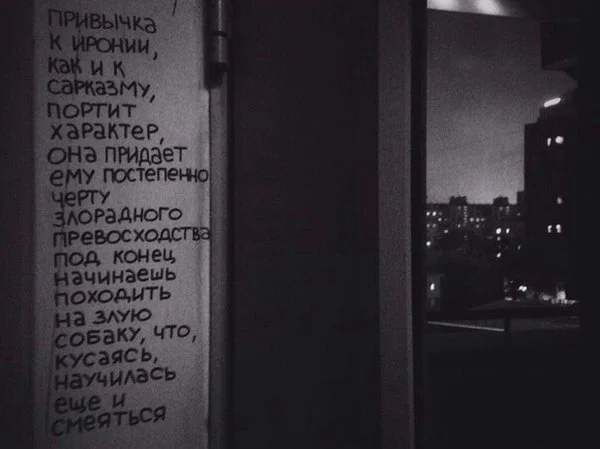 ПРИВЫЧКА
К ИРОНИИ,
КАК И К
САРКАЗМУ,
ПОРТИТ
ХАРАКТЕР,
ОНА ПРИДАЕТ
ЕМУ ПОСТЕПЕННО
ЧЕРТУ
ЗЛОРАДНОГО
ПРЕВОСХОДСТВА
ПОД КОНЕЦ
НАЧИНАЕШЬ
ПОХОДИТЬ
НА ЗЛУЮ
СОБАКУ, ЧТО,
КУСАЯСЬ,
НАУЧИЛАСЬ
ЕЩЕ И
СМЕЯТЬСЯ